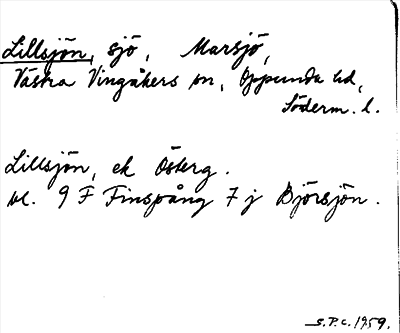 Lillsjön, sjö, Marsjö,
Västra Vingåkers sn, Oppunda hd,
Söderm. l.
Lillsjön, ek Österg.
bl. 9 F Finspång 7 j Björsjön.
S.P.C. 1959.